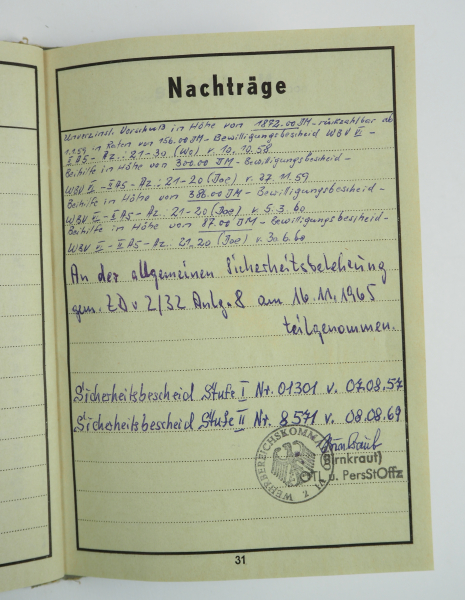 Nachträge
Unverzinsl. Vorschuß in Höhe von 1872.00 DM - rückzahlbar ab
1.1.59 in Raten von 156.00 DM - Bewilligungsbescheid WBV II -
I A5 - Az.: 21-30 (Wo) v. 10.10.58
Beihilfe in Höhe von 300.00 DM - Bewilligungsbescheid -
WBV II - I A5 - Az: 21-20 (Joe) v. 27.11.59
Beihilfe in Höhe von 386.00 DM - Bewilligungsbescheid -
WBV II - I A5 - Az. 21-20 (Joe) v. 5.3.60
Beihilfe in Höhe von 87.00 DM - Bewilligungsbescheid -
WBV II - II A5 - Az. 21.20 (Joe) v. 30.6.60
An der allgemeinen Sicherheitsbelehrung
gem. ZDv 2/32 Anlg. 8 am 16.11.1965
teilgenommen.
Sicherheitsbescheid Stufe I Nr. 01301 v. 07.08.57
Sicherheitsbescheid Stufe II Nr. 8571 v. 08.08.69
(Birnkraut)
OTL u. PersStOffz
31